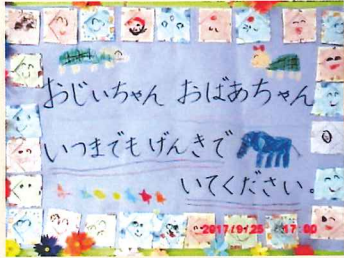 おじいちゃん おばあちゃん
いつまでもげんきで
いてください。
2017/9/25 17:00